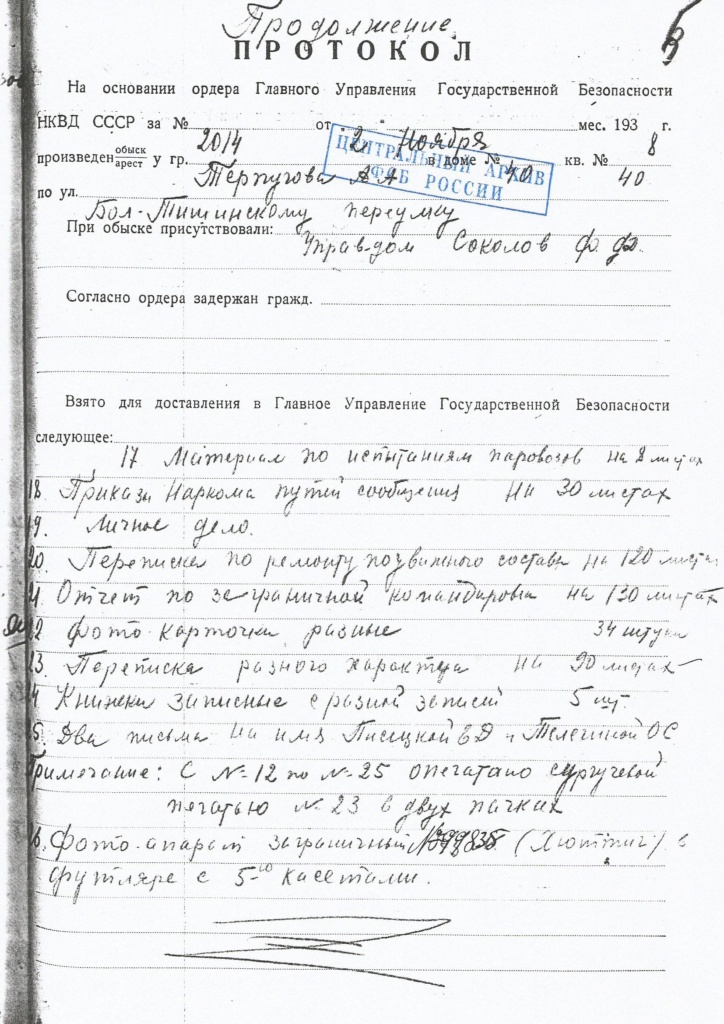 Продолжение
ПРОТОКОЛ
На основании ордера Главного Управления Государственной Безопасности
НКВД СССР за № 2014 от 2 Ноября мес. 1938 г.
произведен обыск арест у гр. Терпугова А А в доме № 40 кв. № 40
по ул. Бол-Тишинскому переулку
ЦЕНТРАЛЬНЫЙ АРХИВ
ФСБ РОССИИ
При обыске присутствовали: Управ-дом Соколов Ф. Ф.
Согласно ордера задержан гражд.
Взято для доставления в Главное Управление Государственной Безопасности
следующее:
17 Материал по испытаниям паровозов на 8 листах
18. Приказы Наркома путей сообщения на 30 листах
19. Личное дело.
20. Переписка по ремонту подвижного состава на 120 листах
21 Отчет по заграничной командировки на 130 листах
22 Фото-карточки разные 34 штуки
23. Переписка разного характера на 90 листах
24 Книжки записные с разной записей 5 шт.
25. Два письма на имя В Д и Телегиной ОС
Примечание: С №-12 по №-25 опечатано сургучевой
печатью №23 в двух пачках
26. Фото-апарат заграничный (Хюттиг) в
футляре с 5-ю касетами.